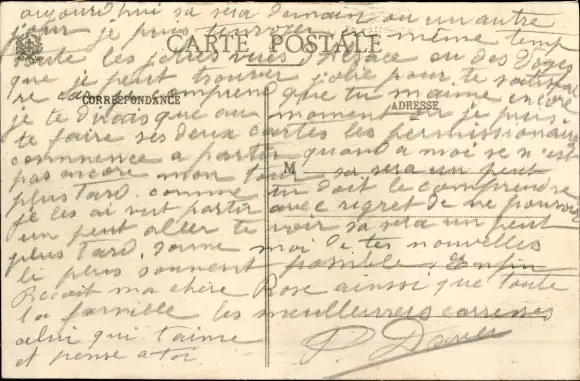 aujourd'hui sa sera demain ou un autre
jour je puis envoyer en même temp
CARTE POSTALE
toute les jolies vues d'Alsace ou des Vosges
que je peut trouver jolie pour te satisfai
re comprend que tu m'aime encore
CORRESPONDANCE
ADRESSE
je te dirais que au moment ou je puis
te faire ses deux cartes les permissionaire
commence a partir quand a moi se n'est
pas encore mon tour sa sera un peut
M
plus tard. comme tu doit le comprendre
je les ai vut partir avec regret de ne pouvoir
un peut aller te voir sa sera un peut
plus tard, donne moi de tes nouvelles
le plus souvent possible, Enfin
Recoit ma chère Rose ainsi que toute
la famille les meulleures caresses
celui qui t'aime
et pense a toi
P.